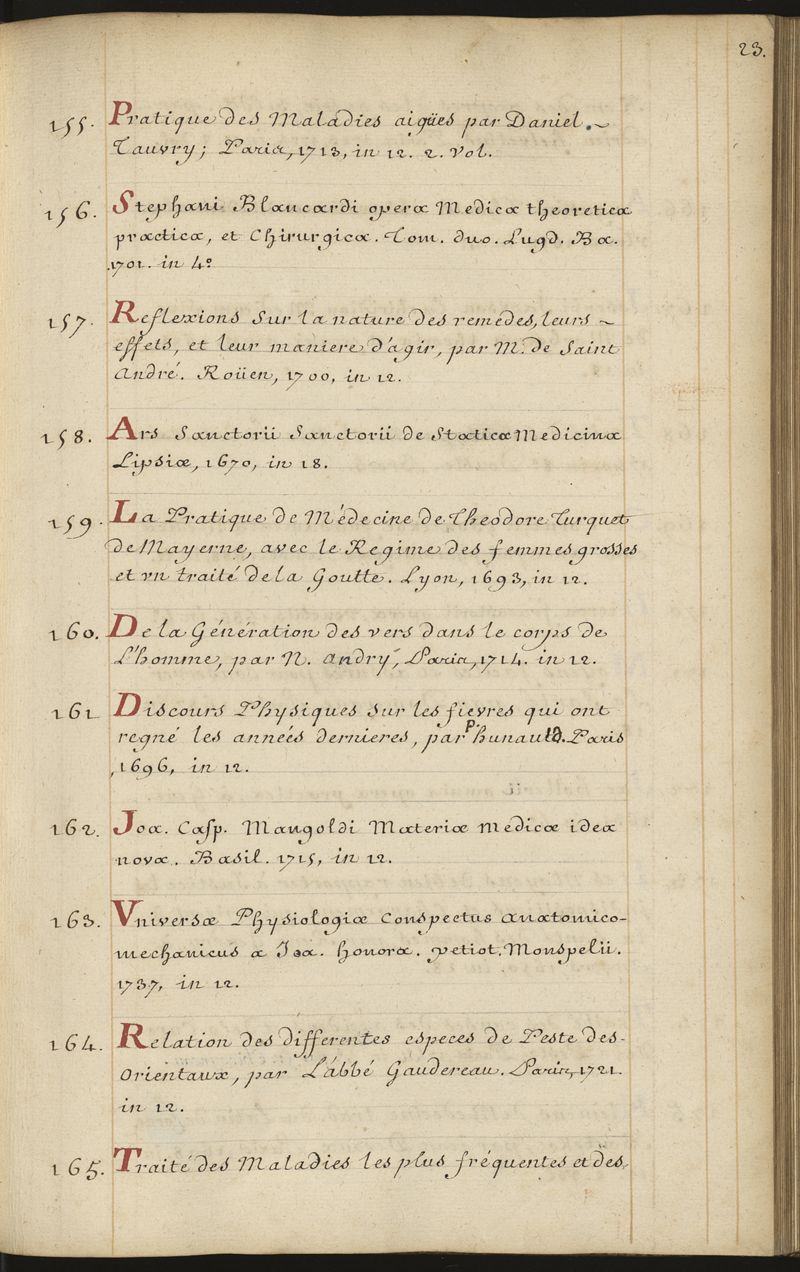 23.
155. Pratique des Maladies aigües par Daniel .~
Tauvry; Paris, 1713, in 12. 2. Vol.
156. Stephani Blancardi opera Medica theoretica
practica, et Chirurgica. Tom. duo. Lugd. Ba.
1701. in 4º
157. Reflexions Sur la nature des remédes, leurs ~
effets, et leur maniere d'agir, par M. de Saint
André. Roüen, 1700, in 12.
158. Ars Sanctorii Sanctorii de Statica Medicina
Lipsiæ, 1670, in 18.
159. La Pratique de Médecine de Theodore Turquet
de Mayerne, avec le Regime des femmes grosses
et vn traité de la Goutte. Lyon, 1693, in 12.
160. De la Génération des vers dans le corps de
L'homme, par N. andry, Paris, 1714. in 12.
161 Discours Physiques sur les fievres qui ont
regné les années dernieres, par P. hunauld. Paris
1696, in 12.
162. Joa. Casp. Mangoldi Materiæ medicæ idea
nova. Basil. 1715, in 12.
163. Vniversæ Physiologiæ Conspectus anatomico-
mechanicus a Joa. honora. petiot. Monspelii.
1737, in 12.
164. Relation des differentes especes de Peste des-
Orientaux, par L'abbé Gaudereau. Paris, 1721.
in 12.
165. Traité des Maladies les plus fréquentes et des